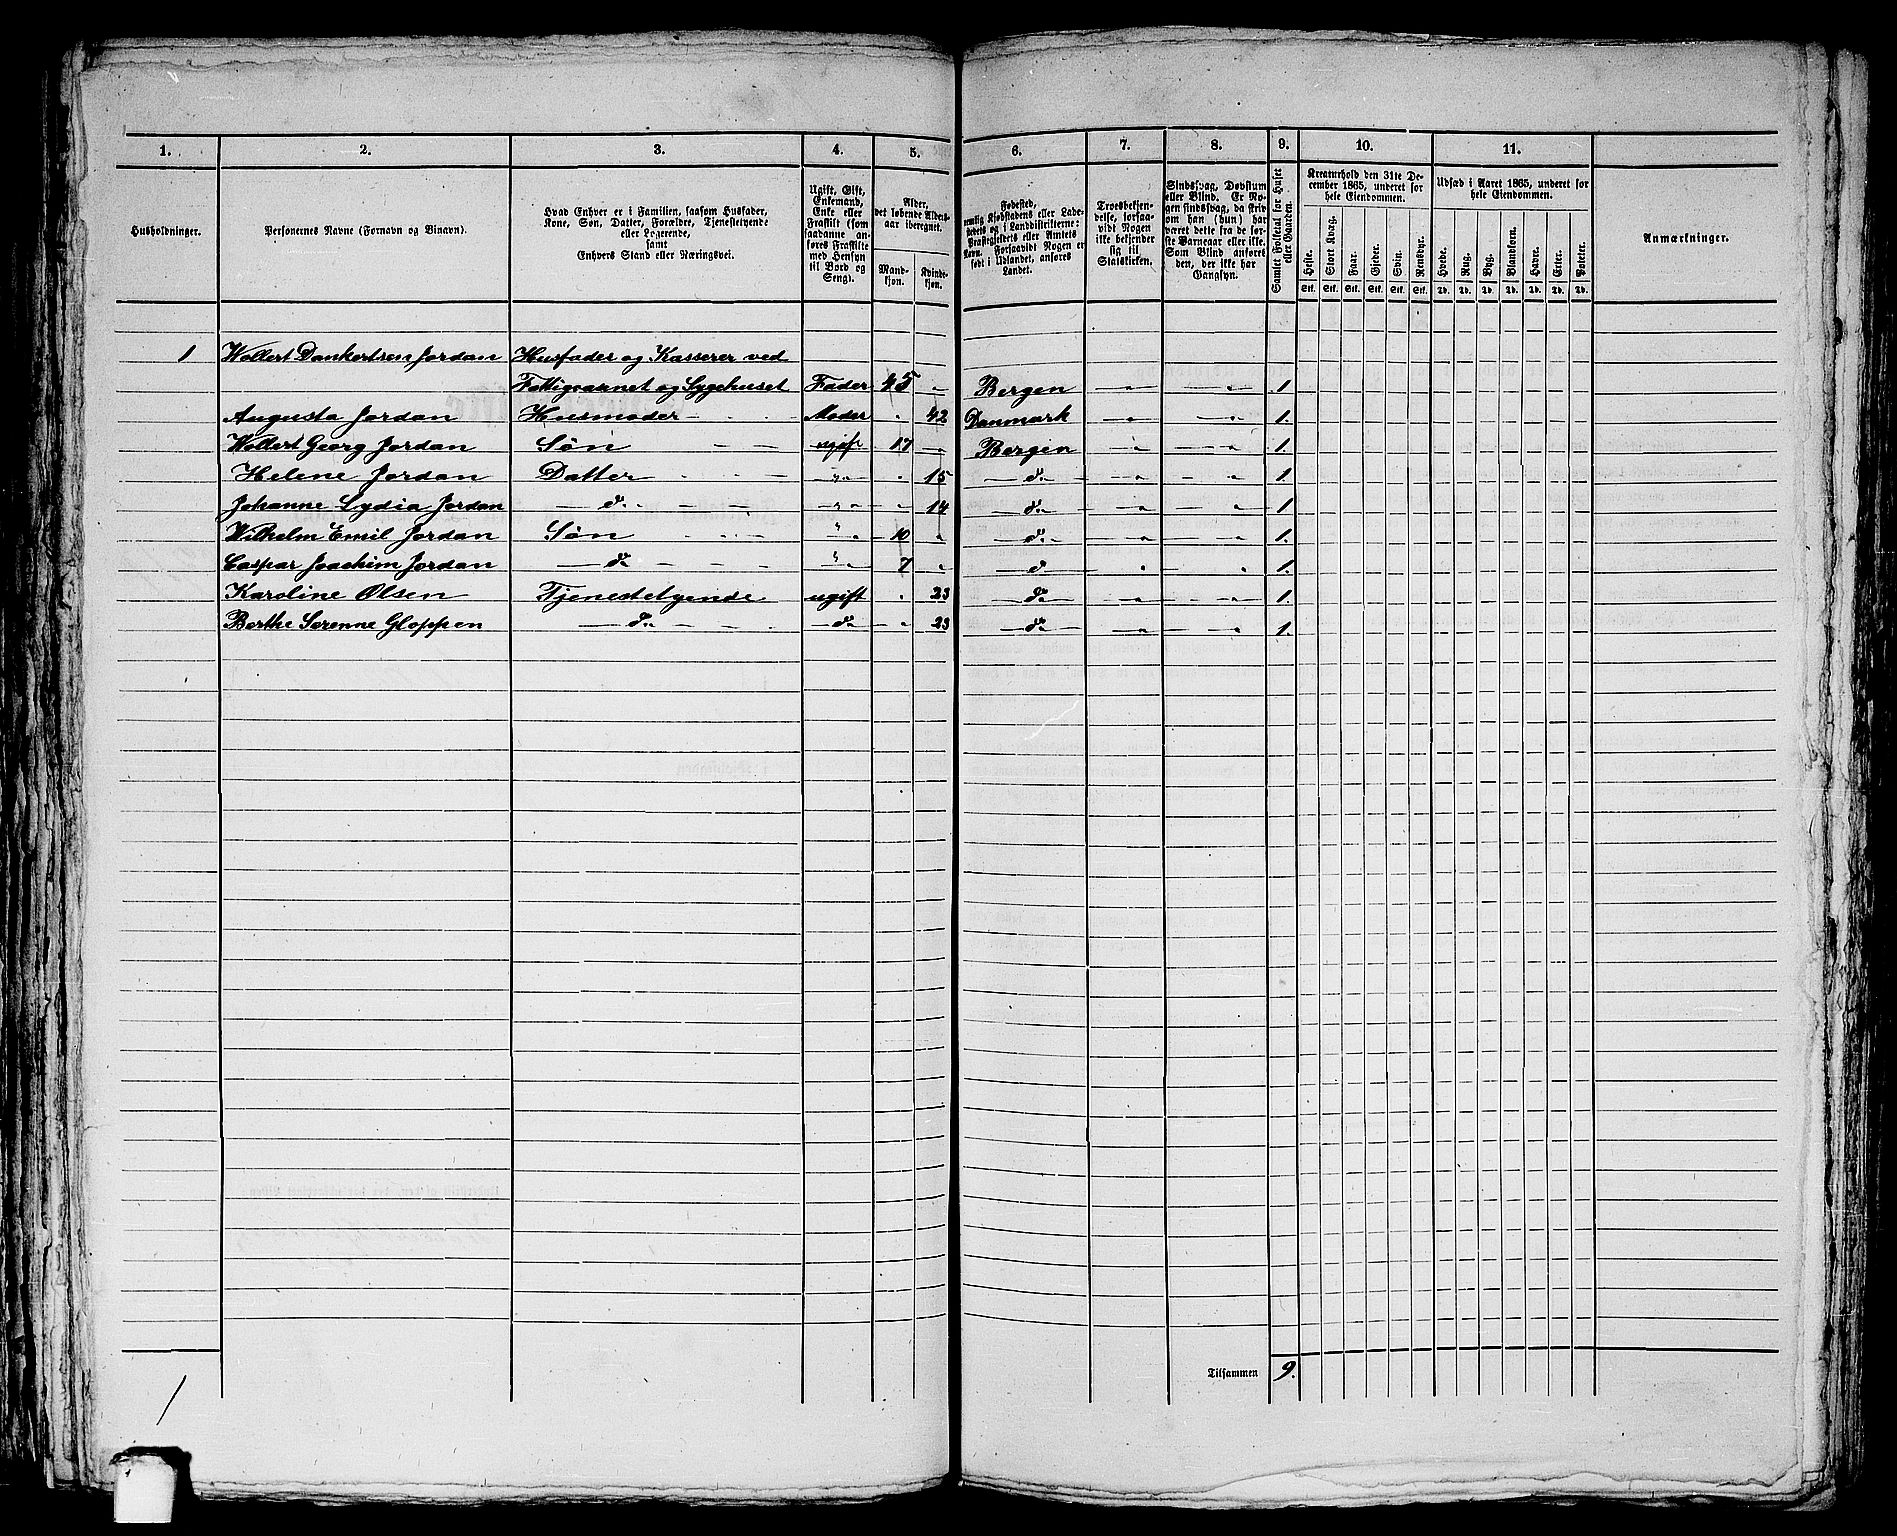 1. 2. 3. 4. 5. 6. 7. 8. 9. 10. 11.
Husholdninger.
Personernes Navne (Fornavn og Binavn).
Hvad Enhver er i Familien, saasom Husfader,
Kone, Søn, Datter, Forældre, Tjenestetyende
eller Logerende,
samt
Enhvers Stand eller Næringsvei.
Ugift, Gift,
Enkemand,
Enke eller
Fraskilt (som
saadanne an-
føres Fraskilte
med Hensyn
til Bord og
Seng).
Alder,
det løbende Alders-
aar iberegnet.
Mand-
kjøn.
Kvinde-
kjøn.
Fødested,
nemlig Kjøbstadens eller Lade-
stedets og i Landdistrikterne:
Præstegjeldets eller Amtets
Navn. Forsaavidt Nogen er
født i Udlandet, anføres
Landet.
Troesbekjen-
delse, forsaa-
vidt Nogen
ikke bekjender
sig til
Statskirken.
Sindssvag, Døvstum
eller Blind. Er No-
gen sindssvag, da skriv
om han (hun) har
været dette fra de før-
ste Barneaar eller ikke.
Som Blind anføret
den, der ikke har
Gangsyn.
Samlet Folketal for Huset
eller Gaarden.
Kreaturhold den 31te De-
cember 1865, underet for
hele Eiendommen.
Heste. Stort Kvæg. Faar. Gjeder. Svin. Rensdyr.
Stk. Stk. Stk. Stk. Stk. Stk.
Udsæd i Aaret 1865, underet for
hele Eiendommen.
Hvede. Rug. Byg. Blandkorn. Havre. Erter. Poteter.
Td. Td. Td. Td. Td. Td. Td.
Anmærkninger.
1 Wollert Dankertsen Jordan Husfader og Kasserer ved
Fattigvæsnet og Sygehuset Fader 45 — Bergen — „ — „ 1.
Augusta Jordan Husmoder — Moder „ 42 Danmark — „ — „ 1.
Wollert Georg Jordan Søn — — ugift 17 — Bergen — „ — „ 1.
Helene Jordan Datter — — „ „ 15 — do — „ — „ 1.
Johanne Lydia Jordan — do — — „ „ 14 — do — „ — „ 1.
Wilhelm Emil Jordan Søn — — „ 10 „ — do — „ — „ 1.
Caspar Joachim Jordan — do — — — „ 7 „ — do — „ — „ 1.
Karoline Olsen Tjenestetyende ugift „ 23 — do — „ — „ 1.
Berthe Serenne Gloppen — do — — — do — „ 23 — do — „ — „ 1.
Tilsammen 9.
1